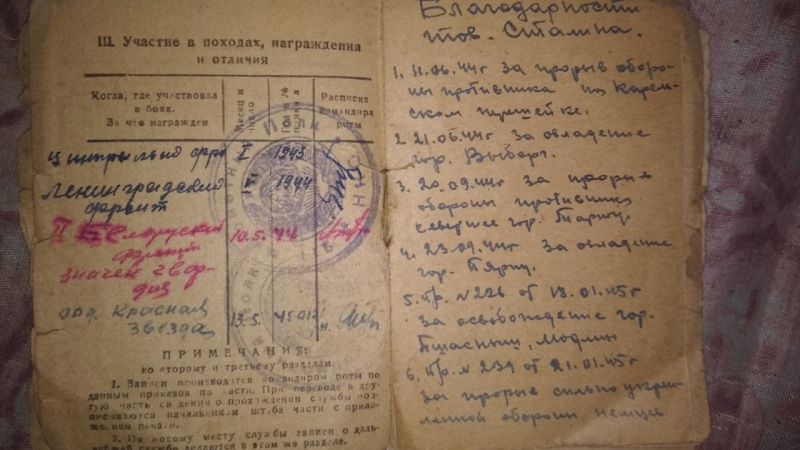 III. Участие в походах, награждения
и отличия
Когда, где участвовал
в боях.
За что награжден
Месяц и
число
Расписка
командира
роты
1943
Ленинградский
фронт
1944
II Белорусский
фронт
10.5. 44
значек гвар-
дия
орд. Красная
Звезда
13.5. 45
ПРИМЕЧАНИЯ:
ко второму и третьему разделам.
1. Записи производятся командиром роты по
данным приказов по части. При переводе в дру-
гую часть сведения о прохождении службы
подписываются начальником штаба части с прило-
жением печати.
2. По новому месту службы записи о даль-
нейшей службе делаются в этом же разделе.
Благодарности
тов. Сталина.
1. 11.06.44г за прорыв оборо-
ны противника на Карель-
ском перешейке.
2. 21.06.44г за овладение
гор. Выборг.
3. 20.09.44г за прорыв
обороны противника
севернее гор. Тарту.
4. 23.09.44г за овладение
гор. Пярну.
5. Пр. №226 от 18.01.45г
за освобождение гор.
Пшасныш, Модлин
6. Пр. № 239 от 21.01.45г
за прорыв сильно укреп-
ленной обороны немцев